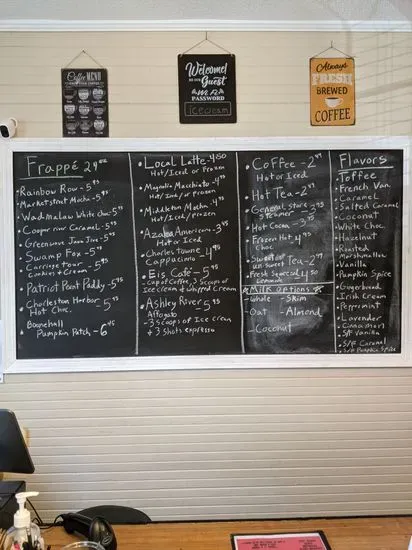 Coffee MENU
Welcome
Guest
PASSWORD
Icecream
Always
FRESH
BREWED
COFFEE
Frappé 24oz
• Rainbow Row - 5.95
• Market street Mocha - 5.95
• Wadmalaw White Choc. 5.95
• Cooper river Caramel - 5.95
• Greenwave Java Jive - 5.95
• Swamp Fox - 5.95
• Carriage tour - 5.95
Cookies + Cream
• Patriot Point Paddy - 5.95
• Charleston Harbor - 5.95
Hot Choc.
• Boonehall
Pumpkin Patch - 6.45
• Local Latte - 4.50
Hot/Iced or Frozen
• Magnolia Macchiato - 4.95
Hot/Iced/or Frozen
• Middleton Mocha - 4.95
Hot/Iced/Frozen
• Azalea Americano - 3.45
Hot or Iced
• Charles towne - 4.95
Cappuccino
• Eis Café - 5.95
- cup of Coffee, 3 Scoops of
Ice cream & whipped Cream
• Ashley River - 5.95
Affogato
- 3 Scoops of Ice cream
+ 3 shots espresso
• Coffee - 2.49
Hot or Iced
• Hot Tea - 2.49
• General store 3.95
Steamer
• Hot Cocoa - 3.75
• Frozen Hot 4.95
Choc.
• Sweet or
un-sweet Tea - 2.49
• Fresh Squeezed 4.50
Lemonade
☆ Milk options ☆
- Whole - Skim
Oat - Almond
- Coconut
Flavors
• Toffee
• French Van.
• Caramel
• Salted Caramel
• Coconut
• White Choc.
• Hazelnut
• Roasted
Marshmallow
• Vanilla
• Pumpkin Spice
• Gingerbread
• Irish Cream
• Peppermint
• Lavender
• Cinnamon
• S/F Vanilla
• S/F Caramel
• S/F Pumpkin Spice